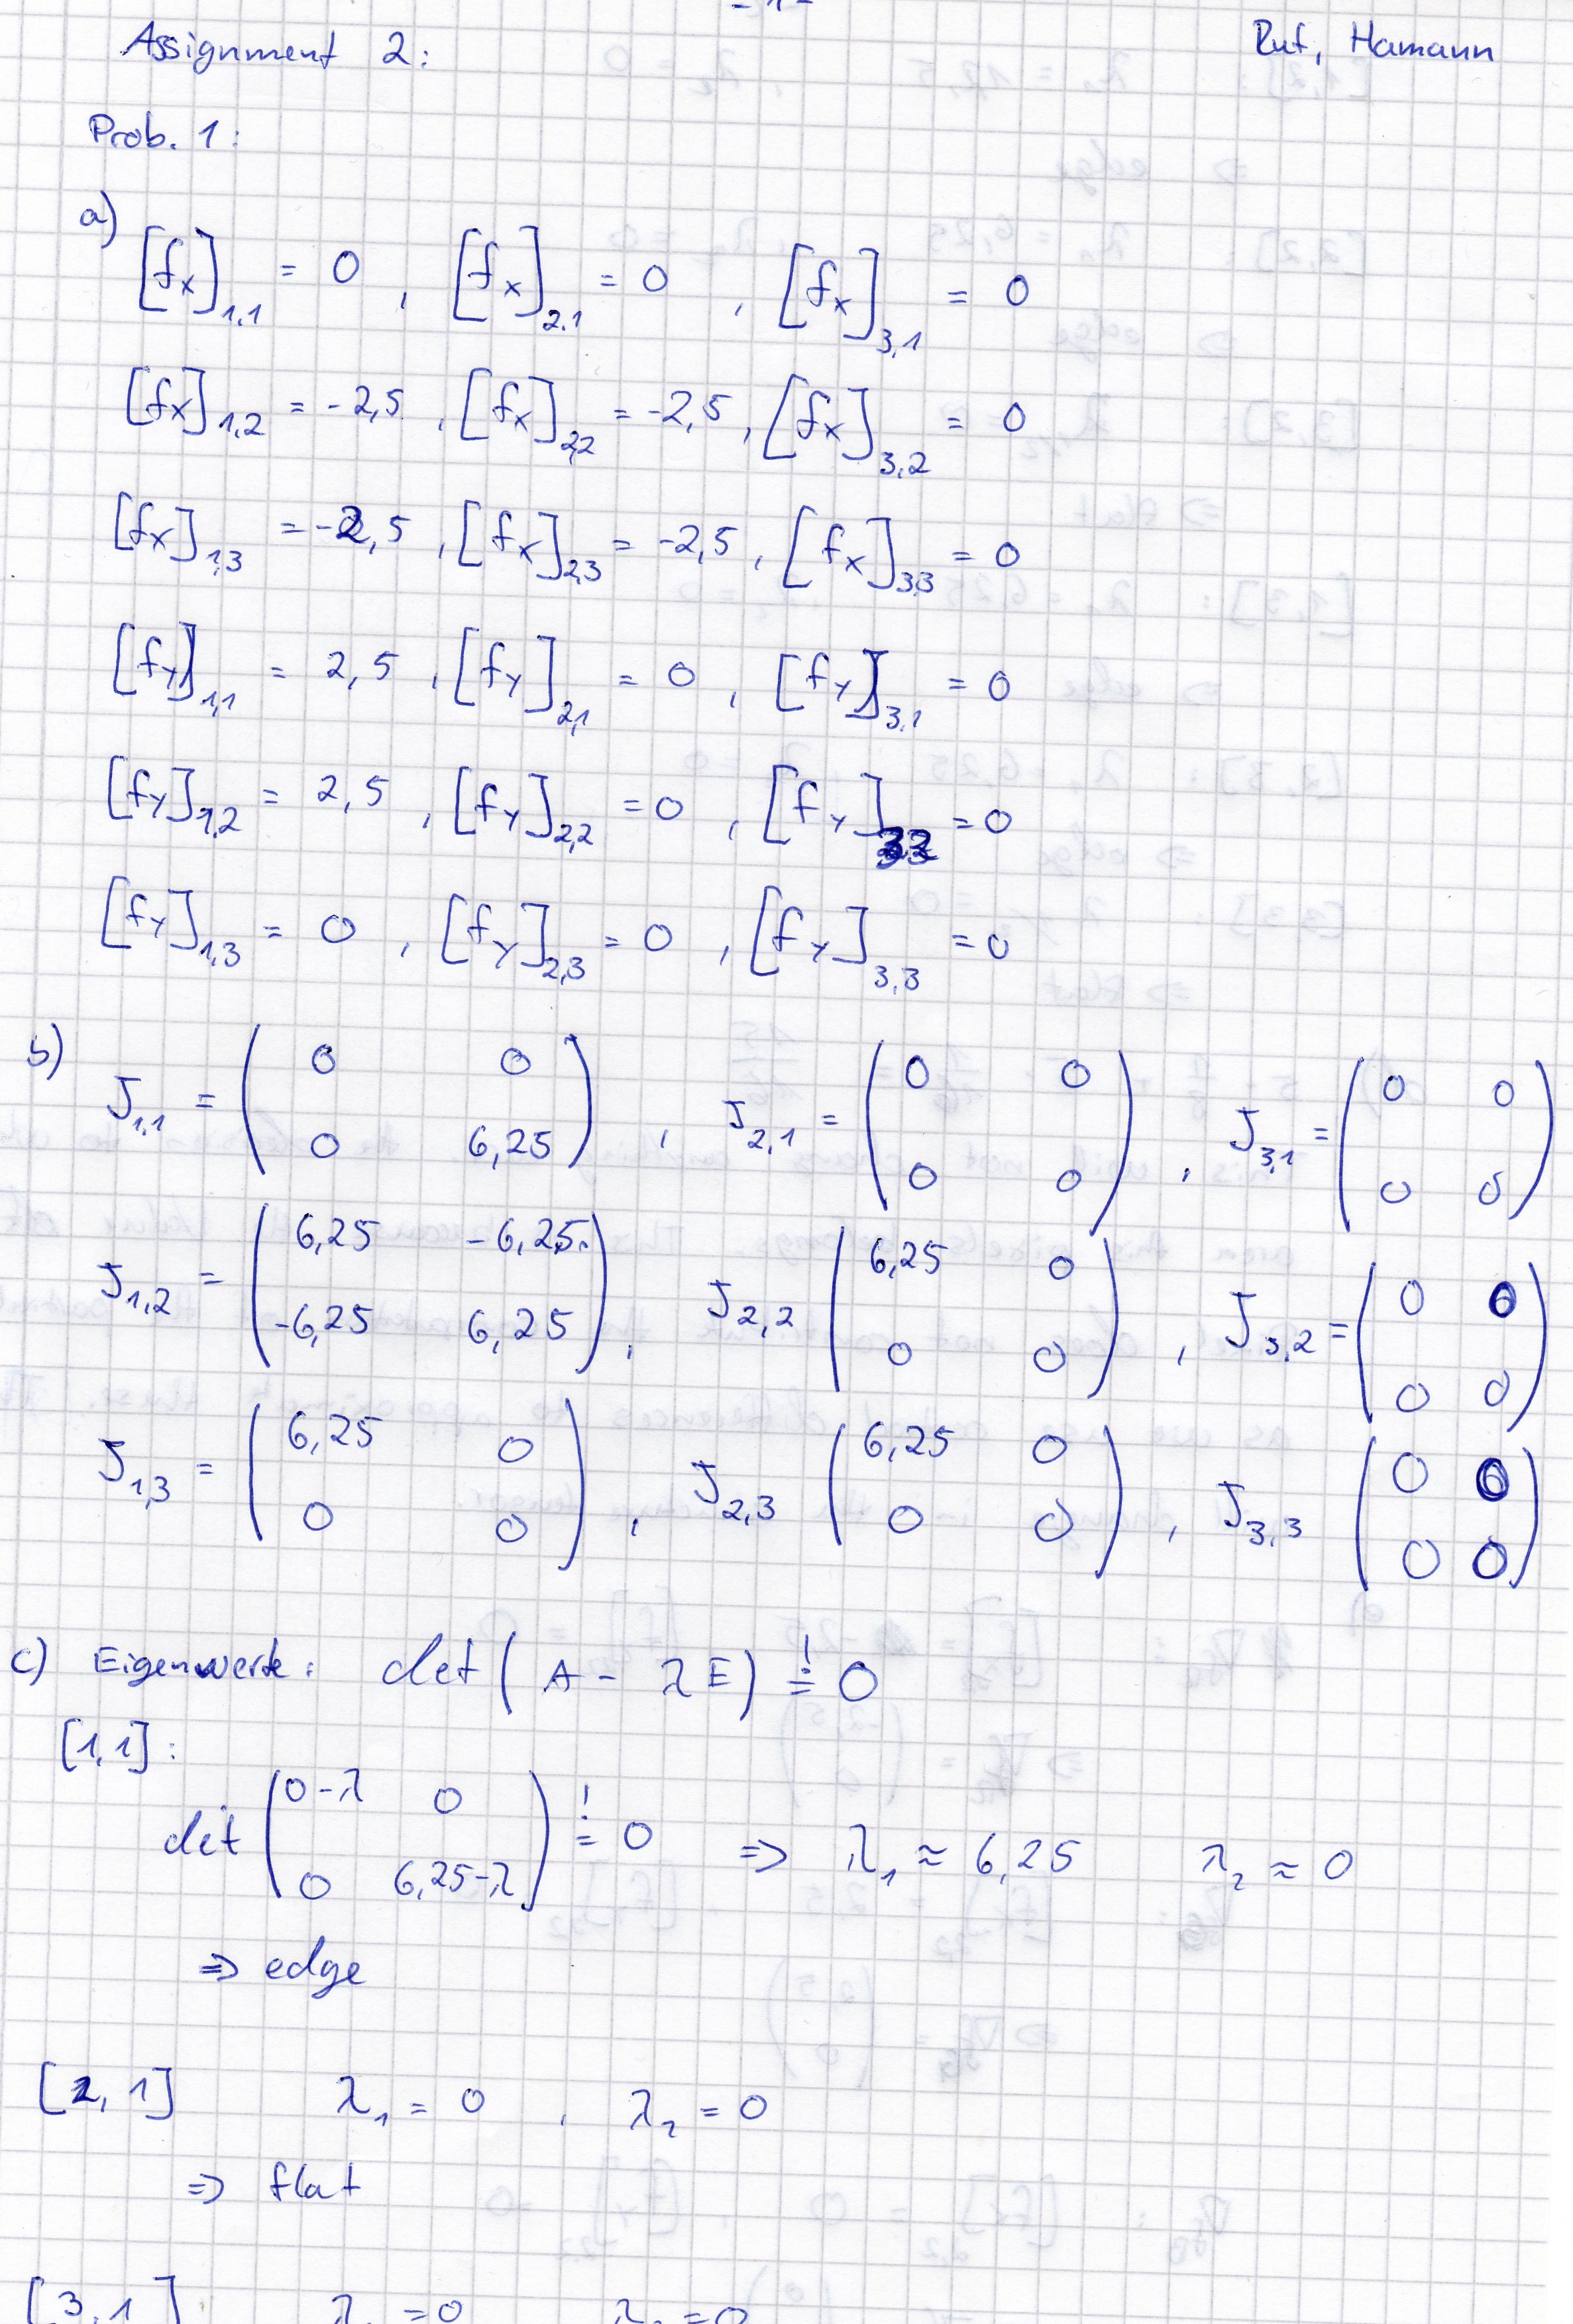 - 1 -
Assignment 2: Ruf, Hamann
Prob. 1:
a)
[fx]1,1 = 0 , [fx]2,1 = 0 , [fx]3,1 = 0
[fx]1,2 = -2,5 , [fx]2,2 = -2,5 , [fx]3,2 = 0
[fx]1,3 = -2,5 , [fx]2,3 = -2,5 , [fx]3,3 = 0
[fy]1,1 = 2,5 , [fy]2,1 = 0 , [fy]3,1 = 0
[fy]1,2 = 2,5 , [fy]2,2 = 0 , [fy]32 = 0
[fy]1,3 = 0 , [fy]2,3 = 0 , [fy]3,3 = 0
b) J1,1 = (0 0; 0 6,25) , J2,1 = (0 0; 0 0) , J3,1 = (0 0; 0 0)
J1,2 = (6,25 -6,25; -6,25 6,25) , J2,2 (6,25 0; 0 0) , J3,2 = (0 0; 0 0)
J1,3 = (6,25 0; 0 0) , J2,3 (6,25 0; 0 0) , J3,3 (0 0; 0 0)
c) Eigenwerte: det(A - λE) != 0
[1,1]:
det (0-λ 0; 0 6,25-λ) != 0 => λ1 ≈ 6,25 λ2 ≈ 0
=> edge
[2,1] λ1 = 0 , λ2 = 0
=> flat
[3,1] λ1 = 0 λ2 = 0